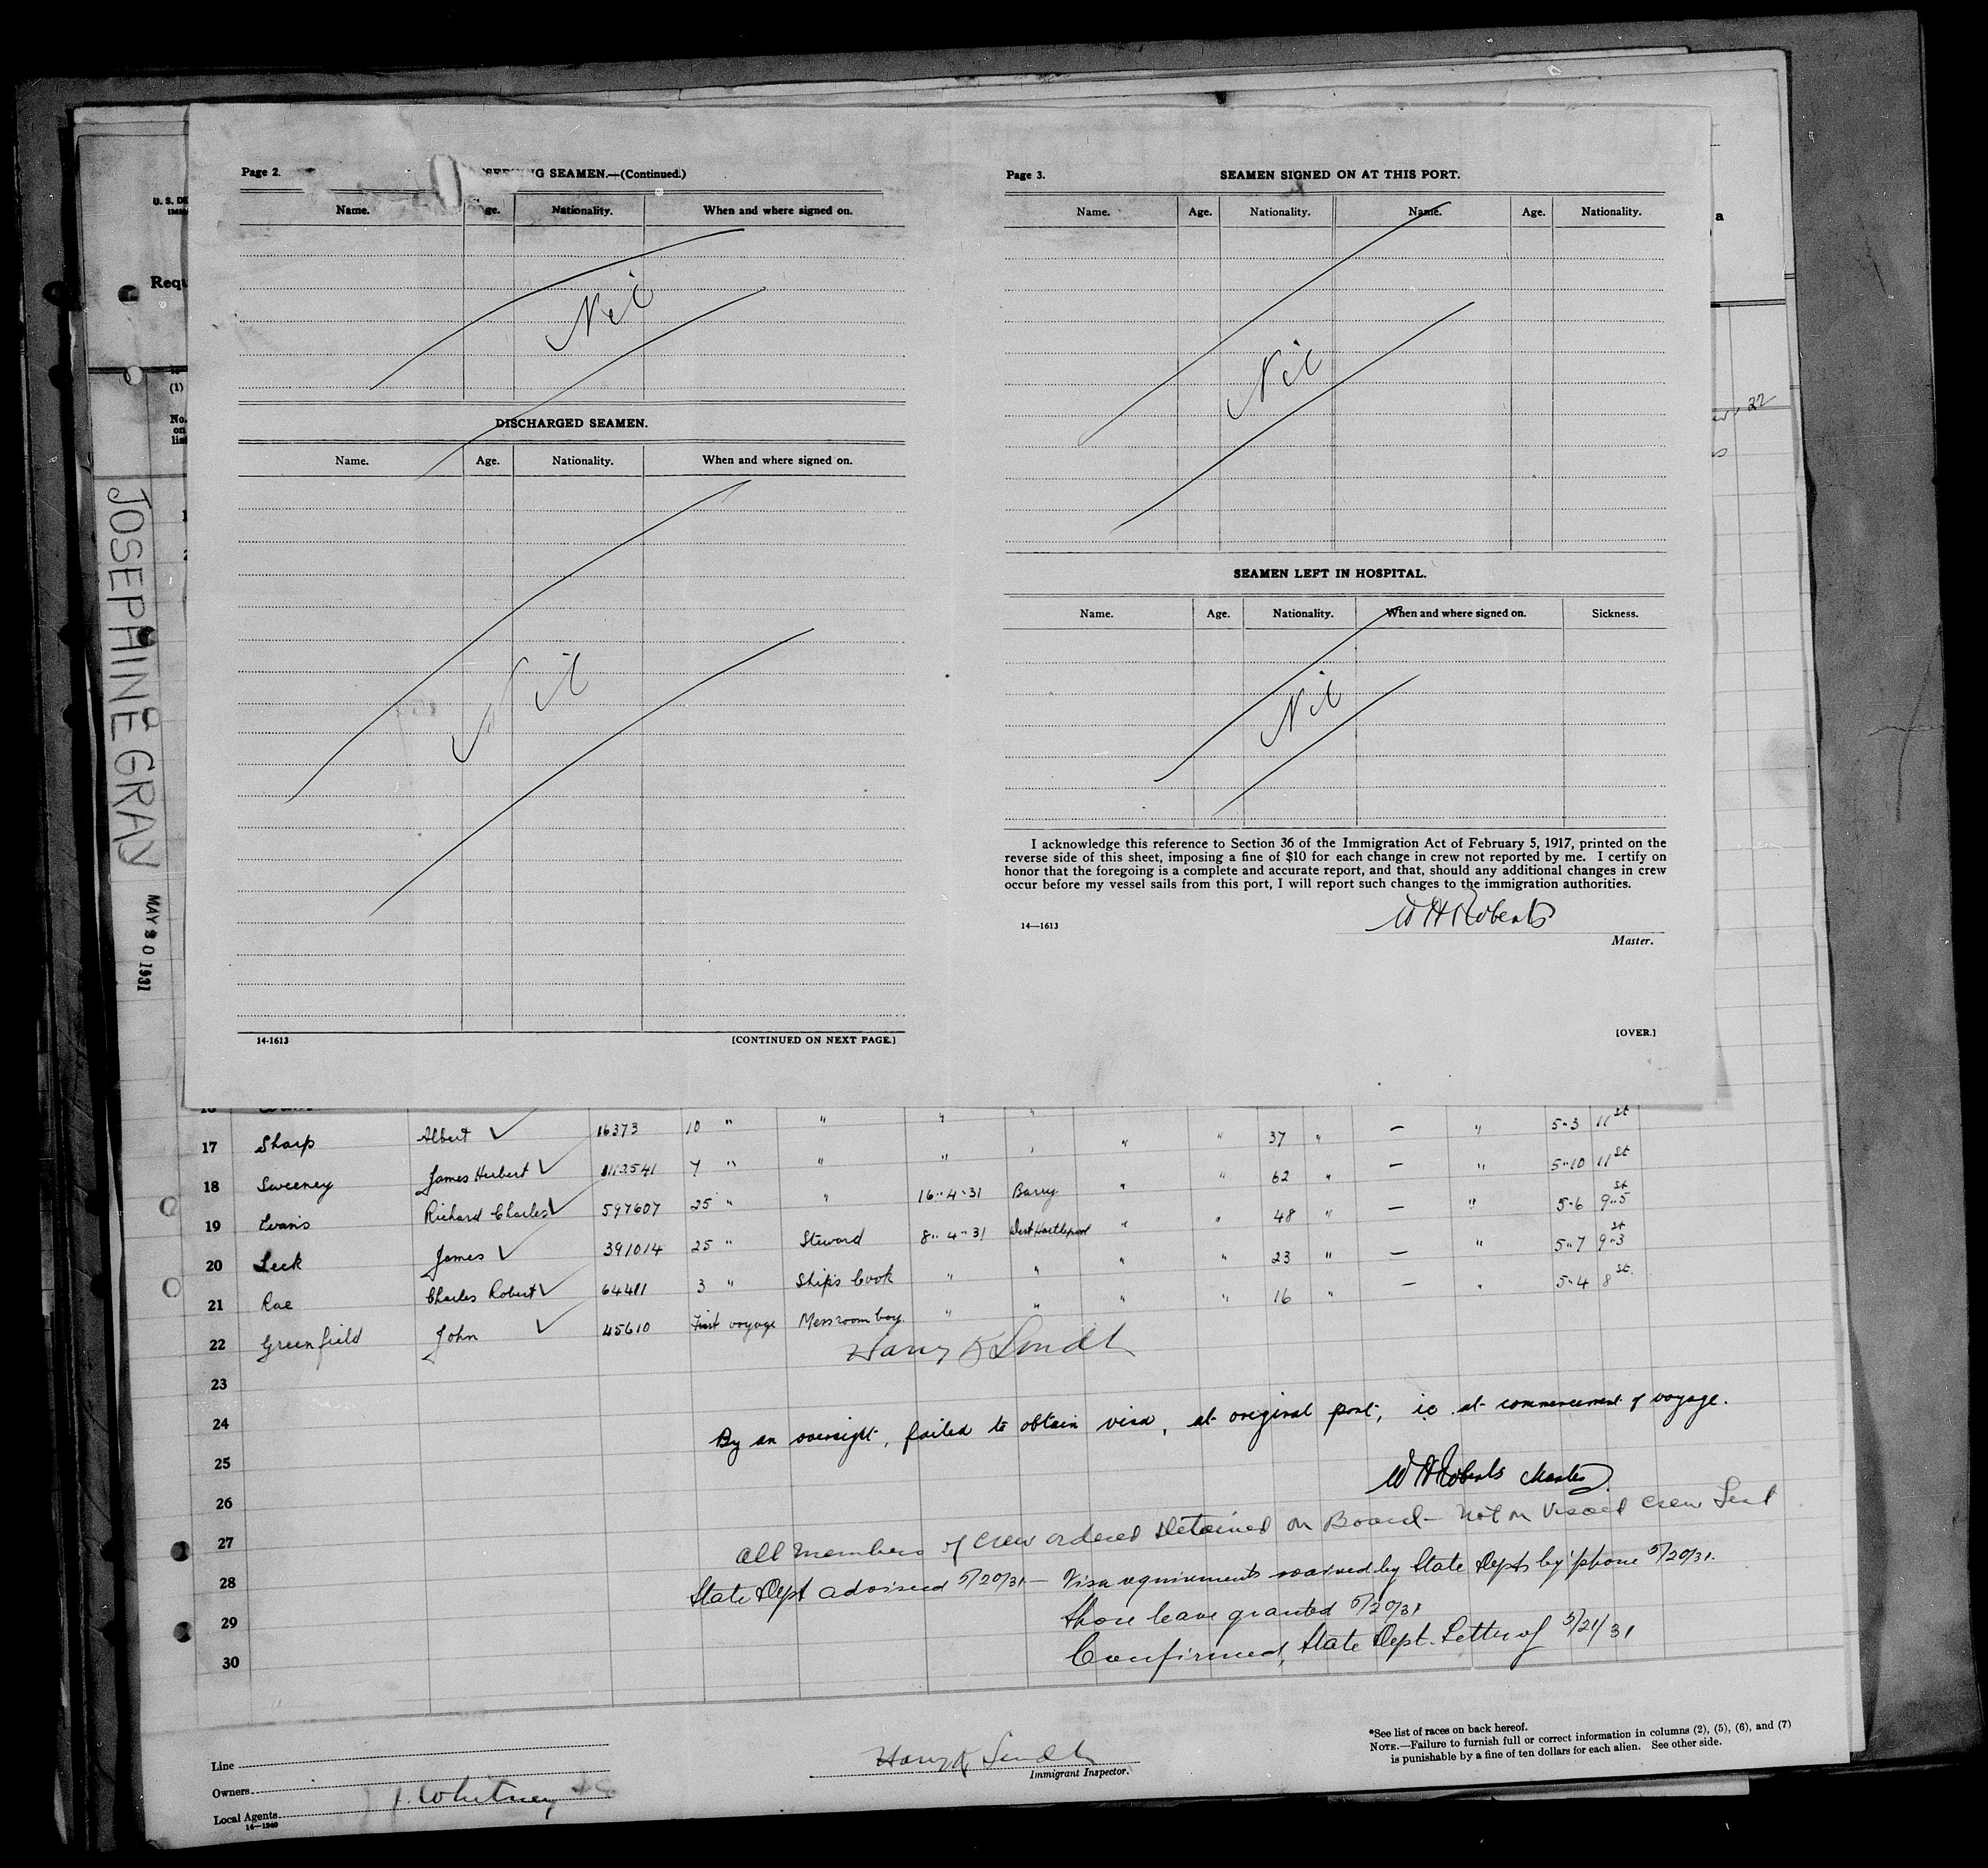 Page 2.
G SEAMEN.—(Continued.)
Name. ge. Nationality. When and where signed on.
Nil
DISCHARGED SEAMEN.
Name. Age. Nationality. When and where signed on.
Nil
14-1613 [CONTINUED ON NEXT PAGE.]
Page 3.
SEAMEN SIGNED ON AT THIS PORT.
Name. Age. Nationality. Name. Age. Nationality.
Nil
SEAMEN LEFT IN HOSPITAL.
Name. Age. Nationality. When and where signed on. Sickness.
Nil
I acknowledge this reference to Section 36 of the Immigration Act of February 5, 1917, printed on the
reverse side of this sheet, imposing a fine of $10 for each change in crew not reported by me. I certify on
honor that the foregoing is a complete and accurate report, and that, should any additional changes in crew
occur before my vessel sails from this port, I will report such changes to the immigration authorities.
W H Roberts
14—1613
Master.
[OVER.]
U. S. DE
Requ
(1)
No.
on
list
a
22
JOSEPHINE GRAY
MAY 30 1931
17 Sharp Albert ✓ 16373 10 " " " ' " " 37 " — " 5-3 11 St
18 Sweeney James Herbert ✓ 1112541 7 " " " " " 62 " — " 5-10 11 St
19 Evans Richard Charles ✓ 597607 25 " " 16-4-31 Barry " " 48 " — " 5-6 9-5 St
20 Leek James ✓ 391014 25 " Steward 8-4-31 West Hartlepool " " 23 " — " 5-7 9-3 St
21 Rae Charles Robert ✓ 64411 3 " Ships Cook " " " " 16 " — " 5-4 8 St.
22 Greenfield John ✓ 45610 First voyage Messroom boy. " "
23
24
25
26
27
28
29
30
By an oversight, failed to obtain visa, at original port, ie. at commencement of voyage.
W H Roberts Master
All members of crew ordered detained on Board - Not on Visaed Crew List
State Dept advised 5/20/31 — Visa requirements waived by State Dept by 'phone 5/20/31.
Shore leave granted 5/20/31
Confirmed, State Dept. Letter of 5/21/31
Line
Owners
Local Agents
Whitney
14—1240
Immigrant Inspector.
*See list of races on back hereof.
NOTE.—Failure to furnish full or correct information in columns (2), (5), (6), and (7)
is punishable by a fine of ten dollars for each alien. See other side.